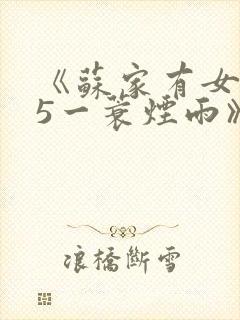 《蘇家有女
5一蓑煙雨》
浪橋斷雪